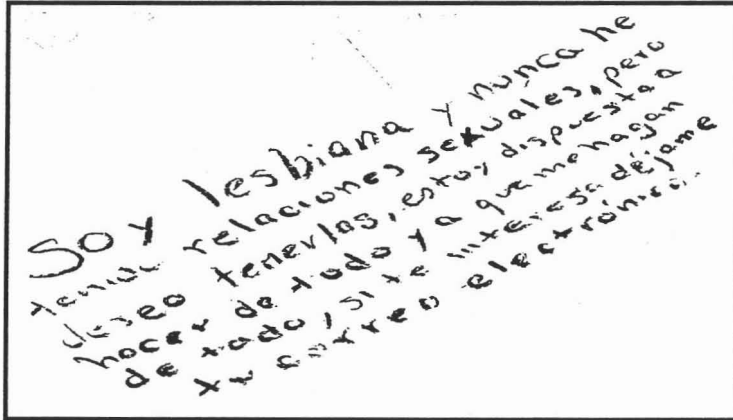 Soy lesbiana y nunca he
tenido relaciones sexuales, pero
deseo tenerlas, estoy dispuesta a
hacer de todo y a que me hagan
de todo, si te interesa déjame
tu correo electrónico.